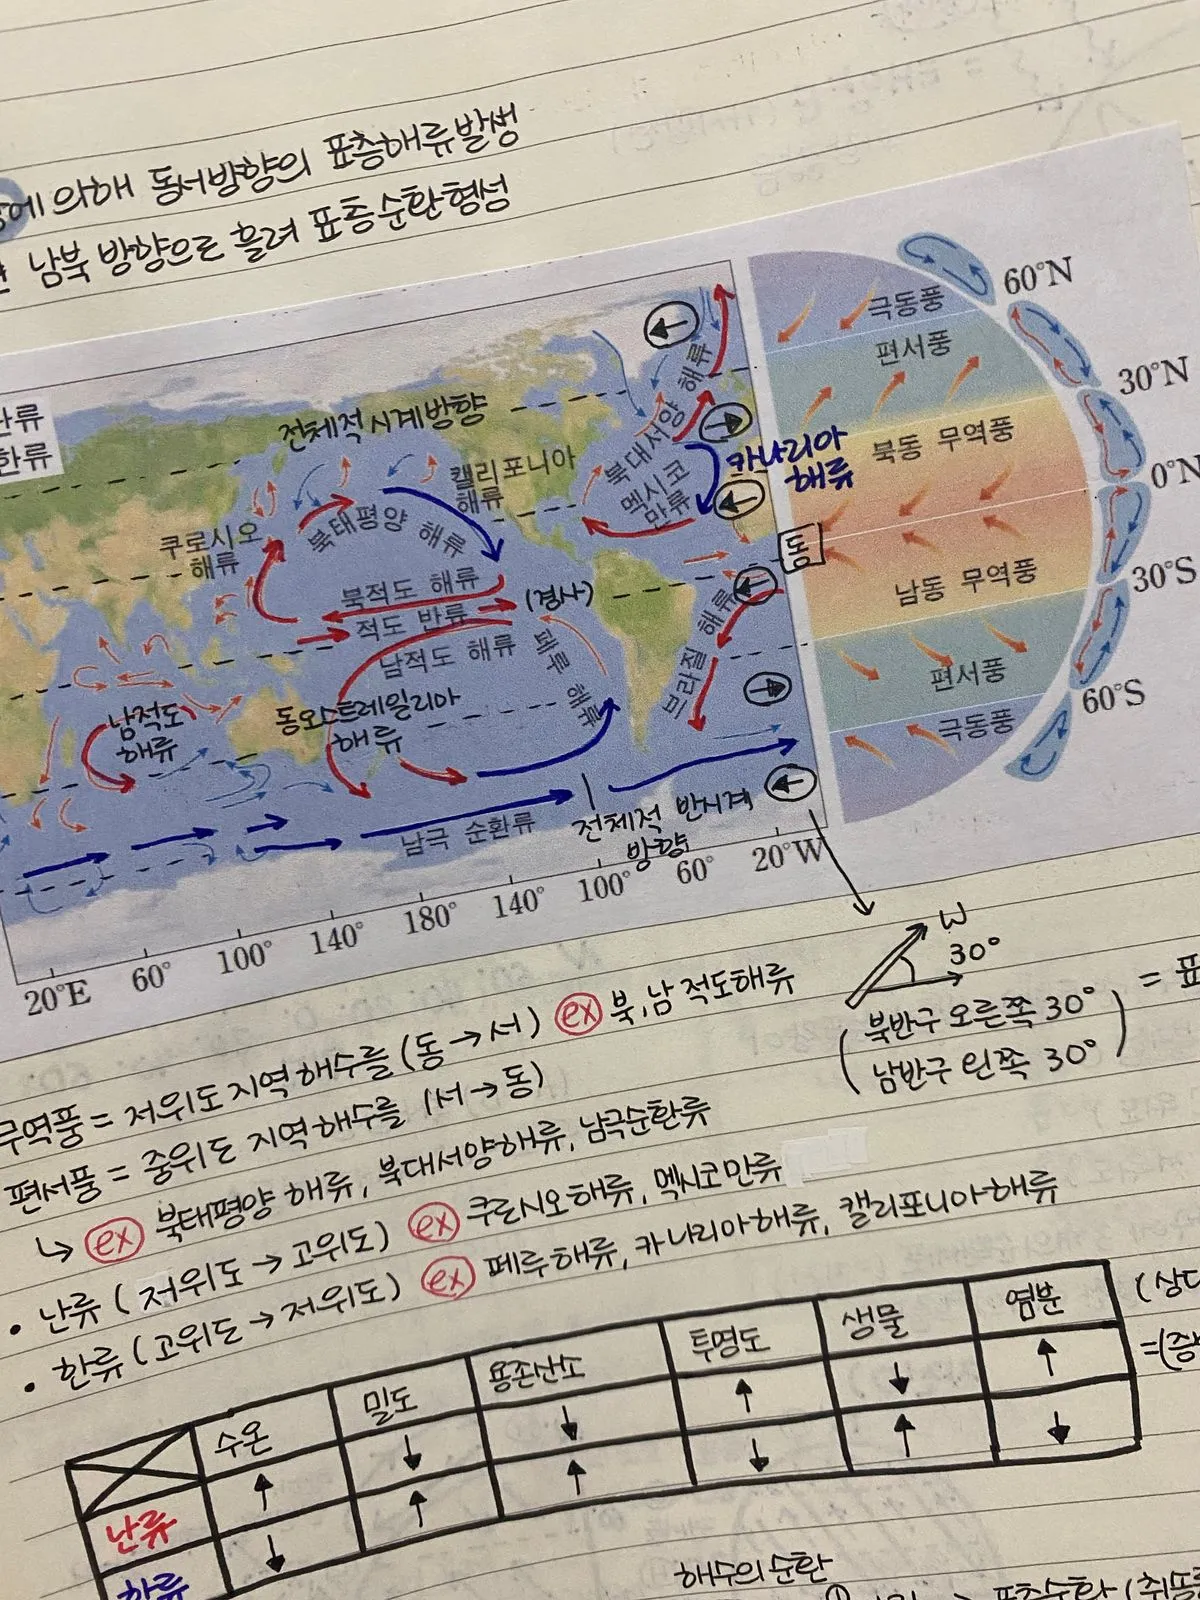 에 의해 동서방향의 표층해류발생
남북 방향으로 흘려 표층순환형성
난류
한류
전체적시계방향
쿠로시오
해류
북태평양 해류
캘리포니아
해류
북적도 해류
적도 반류
(경사)
남적도 해류
페루 해류
남적도
해류
동오스트레일리아
해류
남극 순환류
북대서양 해류
멕시코
만류
카나리아
해류
브라질 해류
동
전체적 반시계
방향
20°E 60° 100° 140° 180° 140° 100° 60° 20°W
극동풍
편서풍
북동 무역풍
남동 무역풍
편서풍
극동풍
60°N
30°N
0°N
30°S
60°S
W
30°
(북반구 오른쪽 30°
남반구 왼쪽 30°) =
무역풍 = 저위도 지역 해수를 (동→서) ex 북,남 적도해류
편서풍 = 중위도 지역 해수를 (서→동)
↳ ex 북태평양 해류, 북대서양해류, 남극순환류
• 난류 (저위도→고위도) ex 쿠로시오해류, 멕시코만류
• 한류 (고위도→저위도) ex 페루해류, 카나리아해류, 캘리포니아해류
수온 밀도 용존산소 투명도 생물 염분
난류 ↑ ↓ ↓ ↑ ↓ ↑
한류 ↓ ↑ ↑ ↓ ↑ ↓
해수의 순환
표층순환